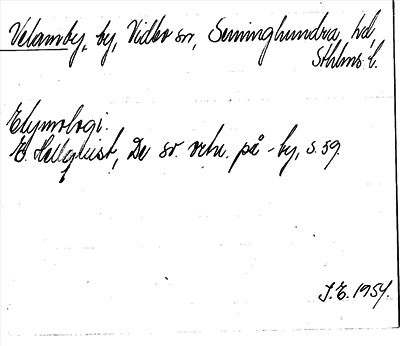 Velamby, by, Vidbo sn, Seminghundra hd,
Sthlms l.
Etymologi.
E. Hellquist, De sv. ortn. på -by, s. 59.
J.E. 1954.